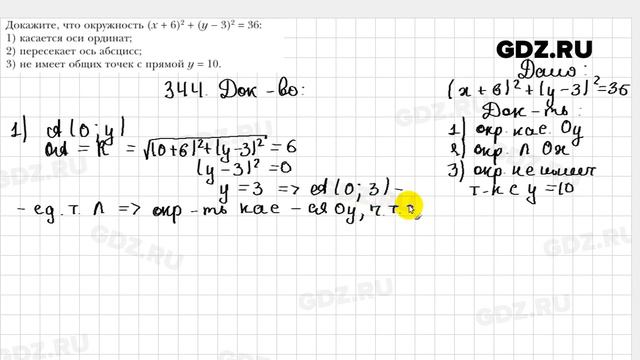 Докажите, что окружность (x + 6)² + (y – 3)² = 36:
1) касается оси ординат;
2) пересекает ось абсцисс;
3) не имеет общих точек с прямой y = 10.
GDZ.RU
344. Док-во:
Дано:
(x + 6)² + (y – 3)² = 36
Док-ть:
1) окр. кас. Oy
2) окр. ∩ Ox
3) окр. не имеет
т-к с y = 10
1) A(0; y)
OA = R = √(0+6)² + (y–3)² = 6
(y–3)² = 0
y = 3 => A(0; 3) –
– ед. т. ∩ => окр-ть кас-ся Oy, ч.т.д